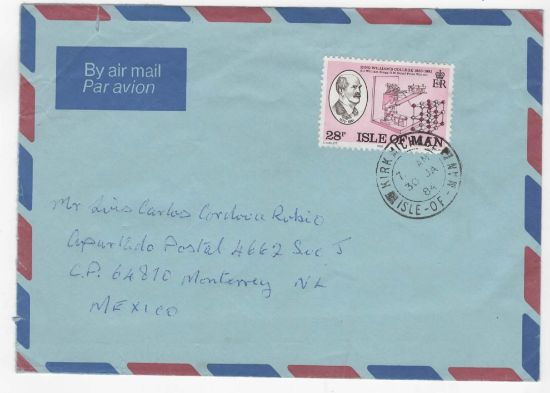 By air mail
Par avion
KING WILLIAM'S COLLEGE 1833-1983
E II R
28P ISLE OF MAN
KIRK MICHAEL
7 AM
30 JA
84
ISLE-OF-MAN
Mr Luis Carlos Cordova Rubio
Apartado Postal 4662 Suc J
C.P. 64810 Monterrey NL
MEXICO